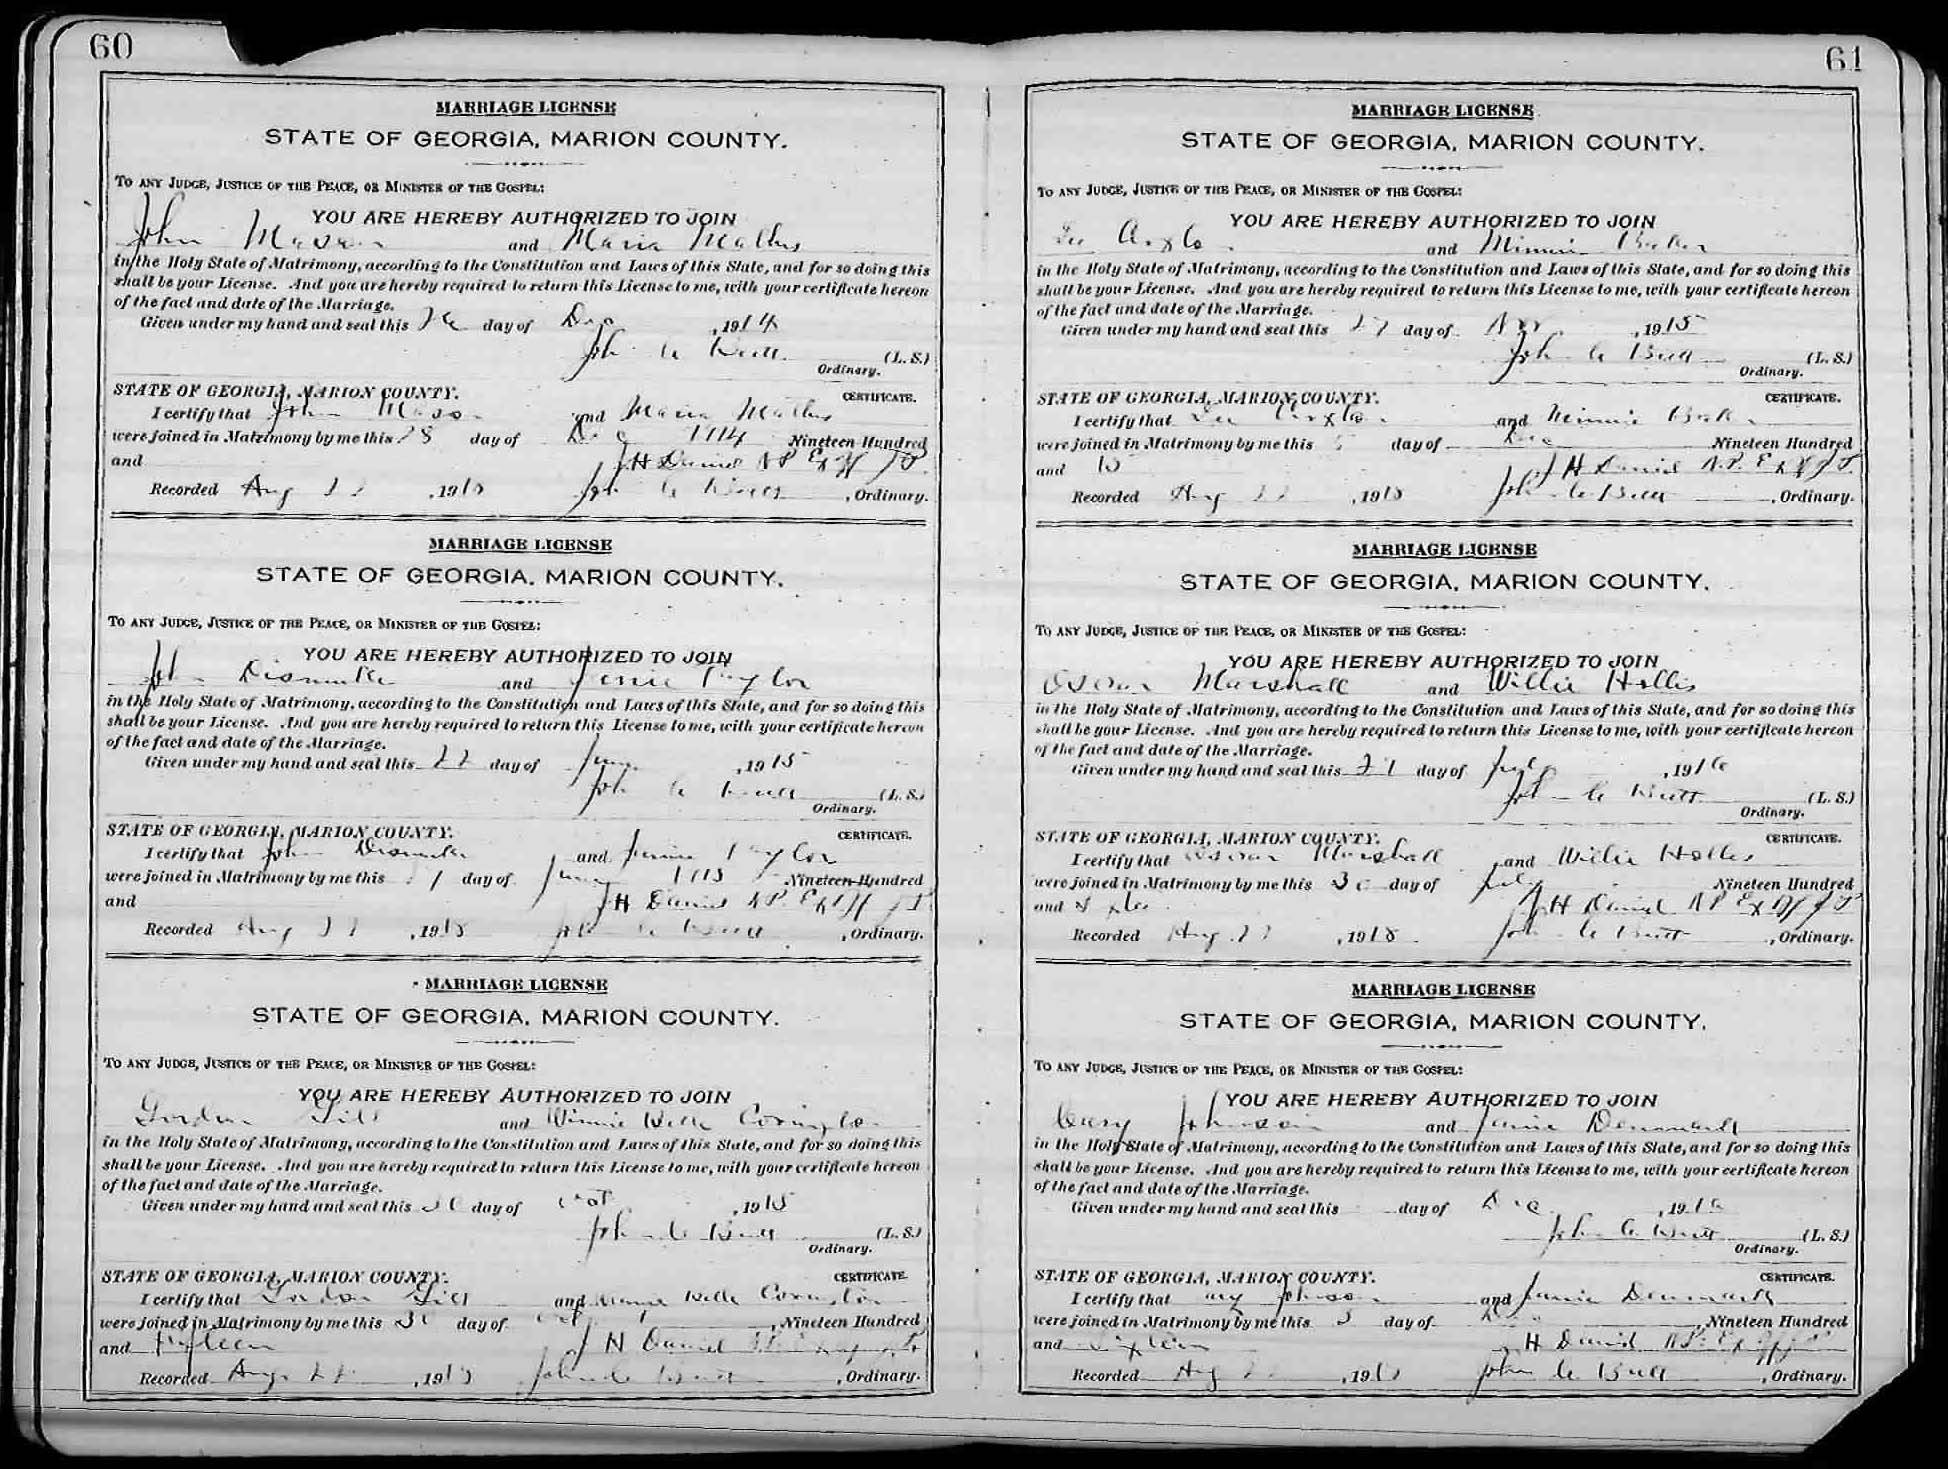 60
MARRIAGE LICENSE
STATE OF GEORGIA, MARION COUNTY.
TO ANY JUDGE, JUSTICE OF THE PEACE, OR MINISTER OF THE GOSPEL:
YOU ARE HEREBY AUTHORIZED TO JOIN
John Mason and Maria Mathis
in the Holy State of Matrimony, according to the Constitution and Laws of this State, and for so doing this
shall be your License. And you are hereby required to return this License to me, with your certificate hereon
of the fact and date of the Marriage.
Given under my hand and seal this 26 day of Dec, 1914
John C Butt (L. S.)
Ordinary.
STATE OF GEORGIA, MARION COUNTY. CERTIFICATE.
I certify that John Mason and Maria Mathis
were joined in Matrimony by me this 28 day of Dec 1914 Nineteen Hundred
and J H Daniel N P Ex Off J P.
Recorded Aug 22, 1918 John C Butt, Ordinary.
MARRIAGE LICENSE
STATE OF GEORGIA, MARION COUNTY.
TO ANY JUDGE, JUSTICE OF THE PEACE, OR MINISTER OF THE GOSPEL:
YOU ARE HEREBY AUTHORIZED TO JOIN
John Dismuke and Jennie Taylor
in the Holy State of Matrimony, according to the Constitution and Laws of this State, and for so doing this
shall be your License. And you are hereby required to return this License to me, with your certificate hereon
of the fact and date of the Marriage.
Given under my hand and seal this 22 day of June, 1915
John C Butt (L. S.)
Ordinary.
STATE OF GEORGIA, MARION COUNTY. CERTIFICATE.
I certify that John Dismuke and Jennie Taylor
were joined in Matrimony by me this day of June 1915 Nineteen Hundred
and J H Daniel N P Ex Off J P
Recorded Aug 22, 1918 John C Butt, Ordinary.
MARRIAGE LICENSE
STATE OF GEORGIA, MARION COUNTY.
TO ANY JUDGE, JUSTICE OF THE PEACE, OR MINISTER OF THE GOSPEL:
YOU ARE HEREBY AUTHORIZED TO JOIN
Gordon Gill and Winnie Belle Covington
in the Holy State of Matrimony, according to the Constitution and Laws of this State, and for so doing this
shall be your License. And you are hereby required to return this License to me, with your certificate hereon
of the fact and date of the Marriage.
Given under my hand and seal this 30 day of Oct, 1915
John C Butt (L. S.)
Ordinary.
STATE OF GEORGIA, MARION COUNTY. CERTIFICATE.
I certify that Gordon Gill and Winnie Belle Covington
were joined in Matrimony by me this day of, Nineteen Hundred
and Fifteen J H Daniel
Recorded Aug 22, 1918 John C Butt, Ordinary.
61
MARRIAGE LICENSE
STATE OF GEORGIA, MARION COUNTY.
TO ANY JUDGE, JUSTICE OF THE PEACE, OR MINISTER OF THE GOSPEL:
YOU ARE HEREBY AUTHORIZED TO JOIN
Lee and Minnie
in the Holy State of Matrimony, according to the Constitution and Laws of this State, and for so doing this
shall be your License. And you are hereby required to return this License to me, with your certificate hereon
of the fact and date of the Marriage.
Given under my hand and seal this 27 day of Nov, 1915
John C Butt (L. S.)
Ordinary.
STATE OF GEORGIA, MARION COUNTY. CERTIFICATE.
I certify that Lee and Minnie
were joined in Matrimony by me this day of Dec Nineteen Hundred
and 15 J H Daniel N.P. Ex Off J P.
Recorded Aug 22, 1918 John C Butt, Ordinary.
MARRIAGE LICENSE
STATE OF GEORGIA, MARION COUNTY.
TO ANY JUDGE, JUSTICE OF THE PEACE, OR MINISTER OF THE GOSPEL:
YOU ARE HEREBY AUTHORIZED TO JOIN
Oscar Marshall and Willie Hollis
in the Holy State of Matrimony, according to the Constitution and Laws of this State, and for so doing this
shall be your License. And you are hereby required to return this License to me, with your certificate hereon
of the fact and date of the Marriage.
Given under my hand and seal this day of July, 1916
John C Butt (L. S.)
Ordinary.
STATE OF GEORGIA, MARION COUNTY. CERTIFICATE.
I certify that Oscar Marshall and Willie Hollis
were joined in Matrimony by me this 30 day of July Nineteen Hundred
and J H Daniel N P Ex Off J P
Recorded Aug 22, 1918 John C Butt, Ordinary.
MARRIAGE LICENSE
STATE OF GEORGIA, MARION COUNTY.
TO ANY JUDGE, JUSTICE OF THE PEACE, OR MINISTER OF THE GOSPEL:
YOU ARE HEREBY AUTHORIZED TO JOIN
Johnson and Janie Denmark
in the Holy State of Matrimony, according to the Constitution and Laws of this State, and for so doing this
shall be your License. And you are hereby required to return this License to me, with your certificate hereon
of the fact and date of the Marriage.
Given under my hand and seal this day of Dec, 1916
John C Butt (L. S.)
Ordinary.
STATE OF GEORGIA, MARION COUNTY. CERTIFICATE.
I certify that Johnson and Janie Denmark
were joined in Matrimony by me this 3 day of Dec, Nineteen Hundred
and Sixteen H Daniel N.P. Ex Off J P
Recorded Aug, 191 John C Butt, Ordinary.